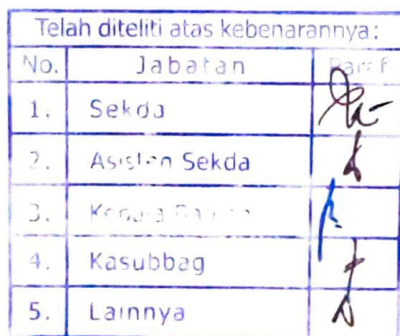 Telah diteliti atas kebenarannya:
No. Jabatan Paraf
1. Sekda
2. Asisten Sekda
3. Kepala
4. Kasubbag
5. Lainnya